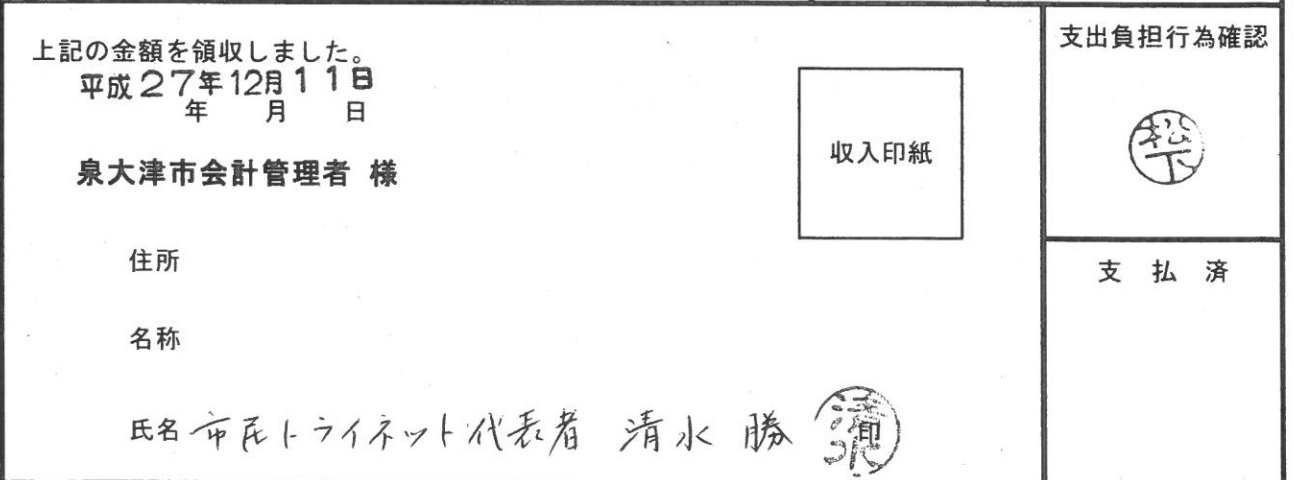 上記の金額を領収しました。
平成27年12月11日
年 月 日
泉大津市会計管理者 様
収入印紙
住所
名称
氏名 市民トライネット代表者 清水 勝 印
清水
支出負担行為確認
松下
支払済